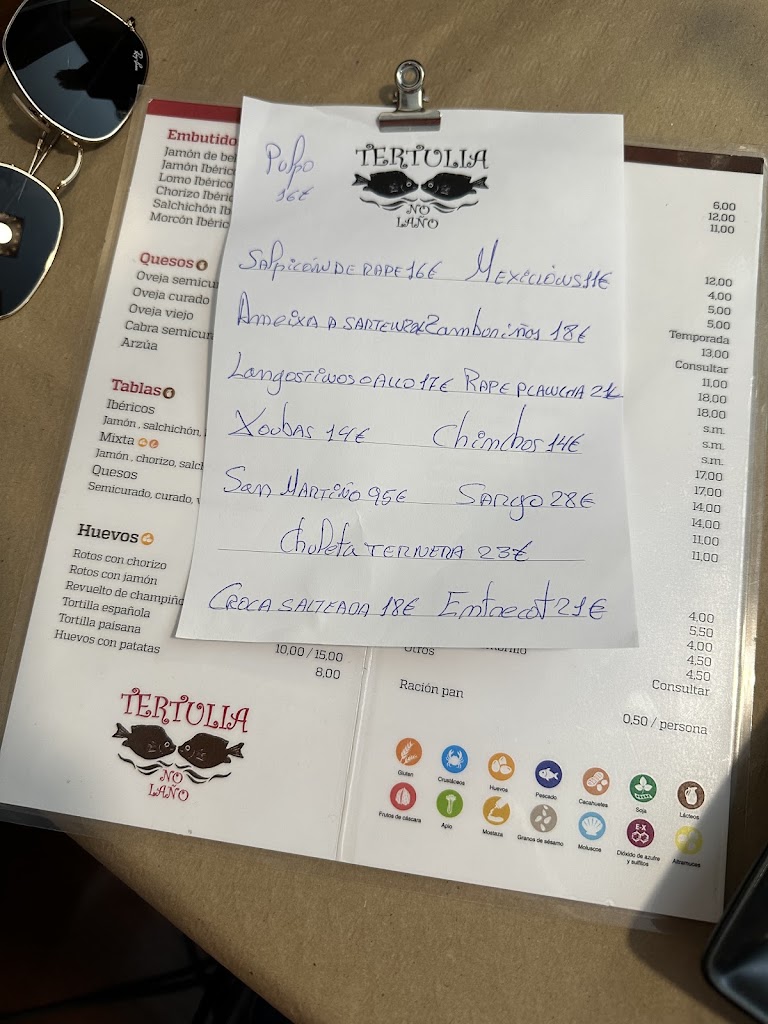 Ray-Ban
Pulpo
16€
TERTULIA
NO
LAÑO
Salpicón DE RAPE 16€ Mexilións 11€
Ameixa A SARTEN 20€ Zamboriñas 18€
Langostinos O ALLO 17€ RAPE PLANCHA 21€
Xoubas 14€ Chinchos 14€
San MARTIÑO 95€ Sargo 28€
Chuleta TERNERA 23€
CROCA SALTEADA 18€ Entrecot 21€
Embutido
Jamón de bel
Jamón Ibéric
Lomo Ibérico
Chorizo Ibéri
Salchichón Ib
Morcón Ibéric
Quesos
Oveja semicu
Oveja curado
Oveja viejo
Cabra semicura
Arzúa
Tablas
Ibéricos
Jamón , salchichón,
Mixta
Jamón , chorizo, salch
Quesos
Semicurado, curado,
Huevos
Rotos con chorizo
Rotos con jamón
Revuelto de champiño
Tortilla española
Tortilla paisana
Huevos con patatas
10,00 / 15,00
8,00
TERTULIA
NO
LAÑO
6,00
12,00
11,00
12,00
4,00
5,00
5,00
Temporada
13,00
Consultar
11,00
18,00
18,00
s.m.
s.m.
s.m.
17,00
17,00
14,00
14,00
11,00
11,00
4,00
5,50
4,00
4,50
4,50
Otros
Consultar
Ración pan
0,50 / persona
Gluten Crustáceos Huevos Pescado Cacahuetes Soja Lácteos
Frutos de cáscara Apio Mostaza Granos de sésamo Moluscos Dióxido de azufre y sulfitos Altramuces